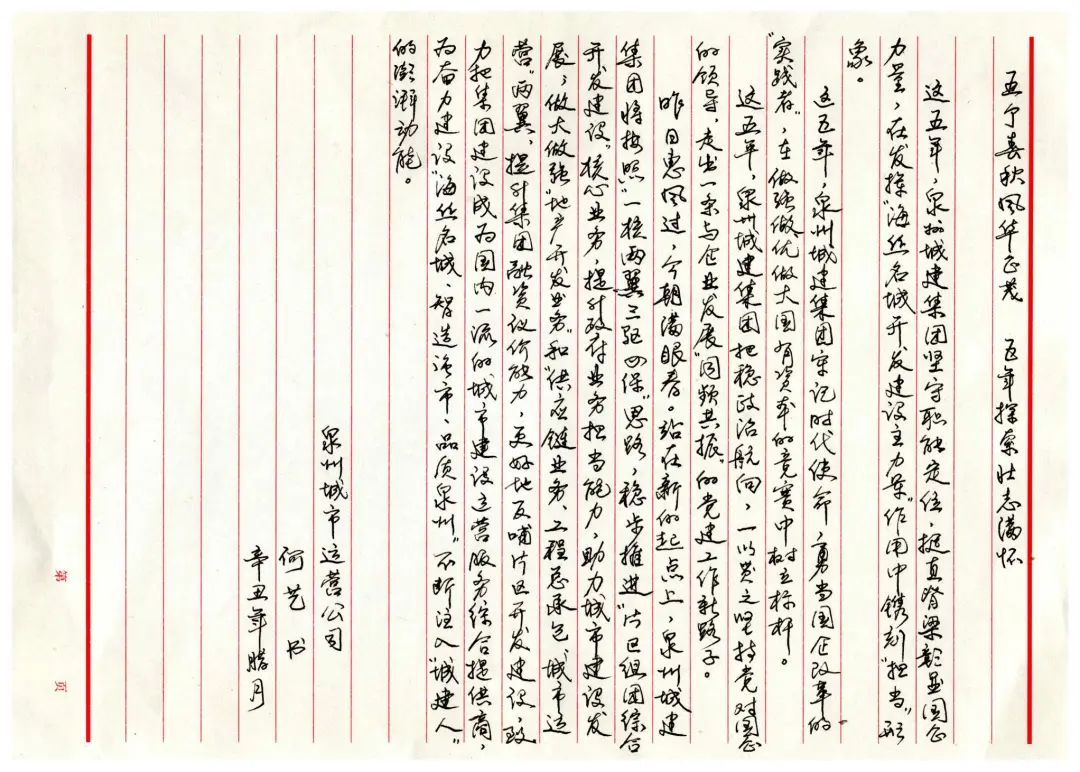 五个春秋风华正茂 五年探索壮志满怀
这五年，泉州城建集团坚守职能定位，挺直脊梁彰显国企
力量，在发挥“海丝名城开发建设主力军”作用中镌刻“担当”形
象。
这五年，泉州城建集团牢记时代使命，勇当国企改革的
“实践者”，在做强做优做大国有资本的竞赛中树立标杆。
这五年，泉州城建集团把稳政治航向，一以贯之坚持党对国企
的领导，走出一条与企业发展“同频共振”的党建工作新路子。
昨日惠风过，今朝满眼春。站在新的起点上，泉州城建
集团将按照“一核两翼三驱四保”思路，稳步推进“片区组团综合
开发建设”核心业务，提升政府业务担当能力，助力城市建设发
展，做大做强“地产开发业务”和“供应链业务、工程总承包、城市运
营”两翼，提升集团融资议价能力，更好地反哺片区开发建设，致
力把集团建设成为国内一流的城市建设运营服务综合提供商，
为奋力建设“海丝名城、智造强市、品质泉州”不断注入“城建人”
的澎湃动能。
泉州城市运营公司
何艺 书
辛丑年腊月
第 页